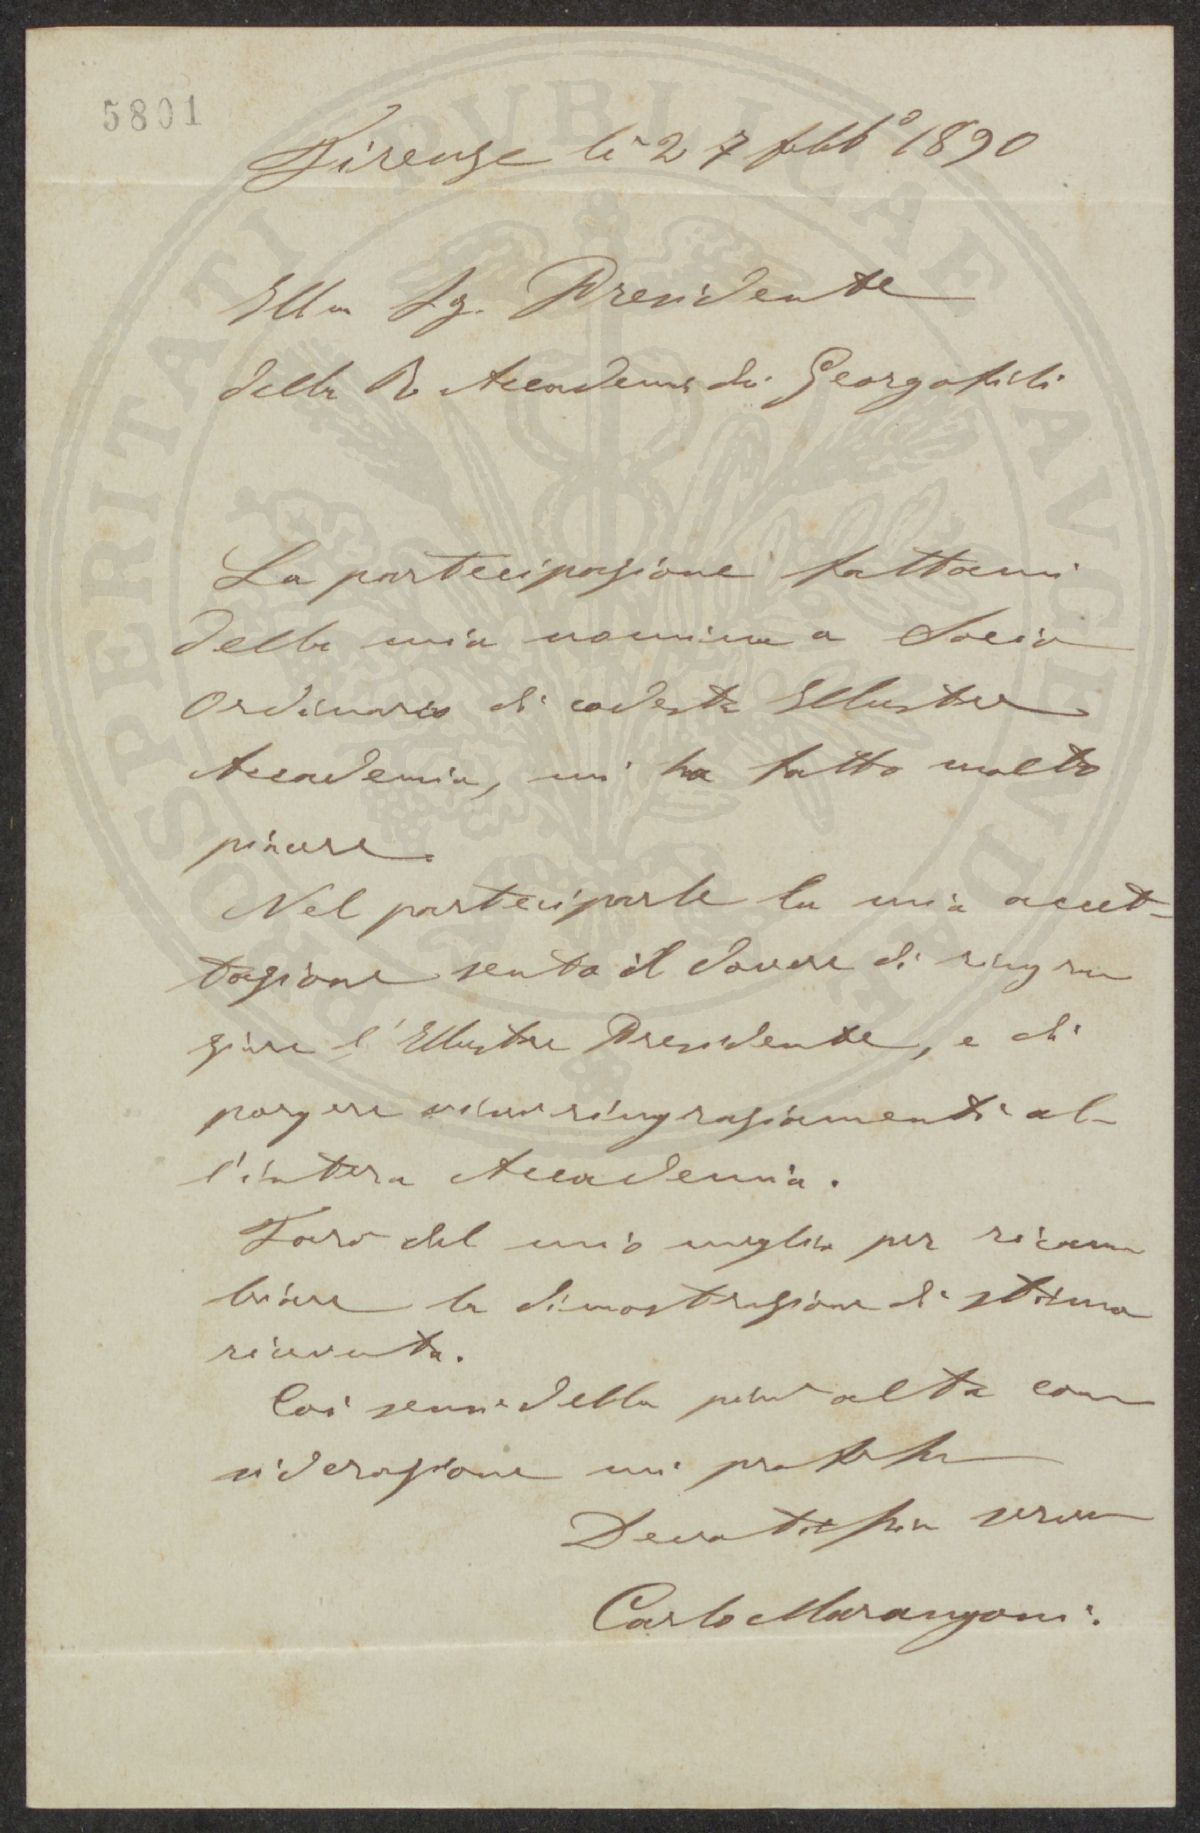 5801
Firenze li 27 febb° 1890
Illmo Sg. Presidente
della R. Accademia dei Georgofili
La partecipazione fattami
della mia nomina a Socio
Ordinario di codesta Illustre
Accademia, mi ha fatto molto
piacere.
Nel parteciparle la mia accet-
tazione sento il dovere di ringra
ziare l'Illustre Presidente, e di
porgere vivi ringraziamenti al-
l'intera Accademia.
Farò del mio meglio per ricam
biare la dimostrazione di stima
ricevuta.
Coi sensi della più alta con
siderazione mi protesto
Devotissimo servo
Carlo Marangoni.
PROSPERITATI PVBLICAE AVGENDAE